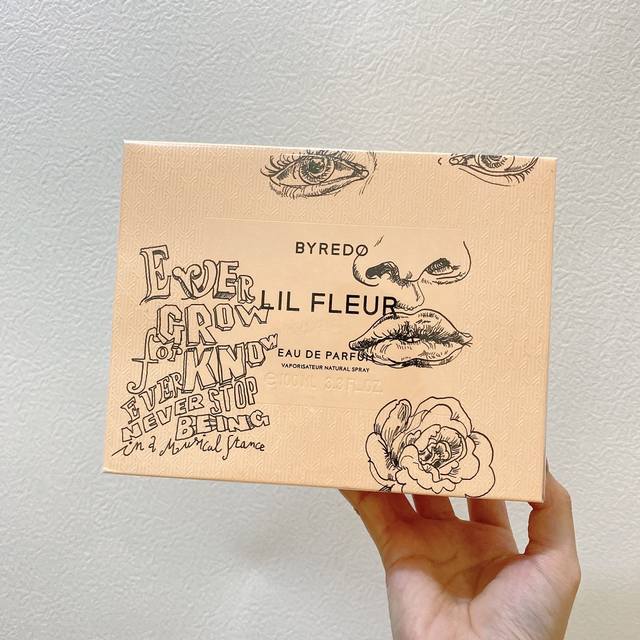 BYREDO
LIL FLEUR
EAU DE PARFUM
VAPORISATEUR NATURAL SPRAY
℮100ML 3.3 FL.OZ.
EVER
GROW
for KNOW
EVER
NEVER STOP
BEING
in a Musical Stance